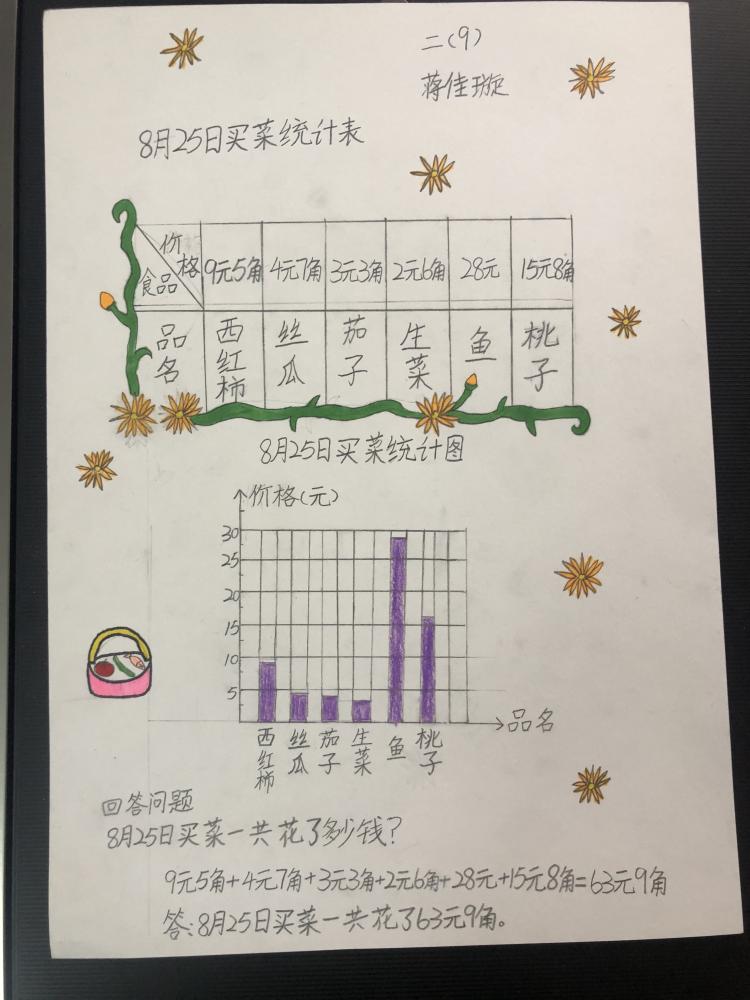 二(9)
蒋佳璇
8月25日买菜统计表
价格 9元5角 4元7角 3元3角 2元6角 28元 15元8角
食品
品名 西红柿 丝瓜 茄子 生菜 鱼 桃子
8月25日买菜统计图
价格(元)
30
25
20
15
10
5
品名
西红柿 丝瓜 茄子 生菜 鱼 桃子
回答问题
8月25日买菜一共花了多少钱?
9元5角+4元7角+3元3角+2元6角+28元+15元8角=63元9角
答:8月25日买菜一共花了63元9角。